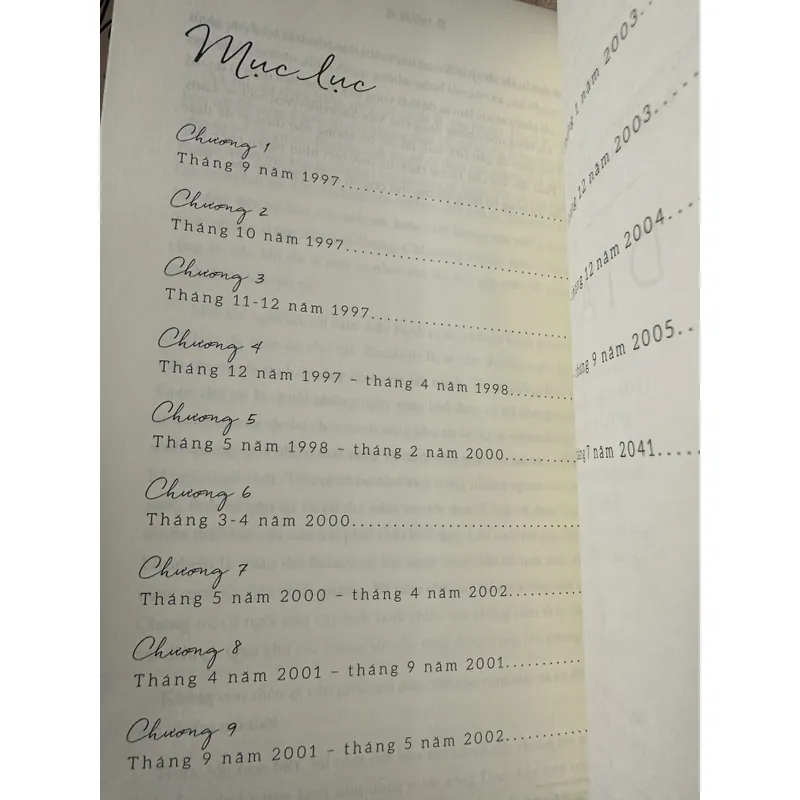 Mục lục
Chương 1
Tháng 9 năm 1997
Chương 2
Tháng 10 năm 1997
Chương 3
Tháng 11-12 năm 1997
Chương 4
Tháng 12 năm 1997 – tháng 4 năm 1998
Chương 5
Tháng 5 năm 1998 – tháng 2 năm 2000
Chương 6
Tháng 3-4 năm 2000
Chương 7
Tháng 5 năm 2000 – tháng 4 năm 2002
Chương 8
Tháng 4 năm 2001 – tháng 9 năm 2001
Chương 9
Tháng 9 năm 2001 – tháng 5 năm 2002
1 năm 2003
12 năm 2003
12 năm 2004
9 năm 2005
7 năm 2041